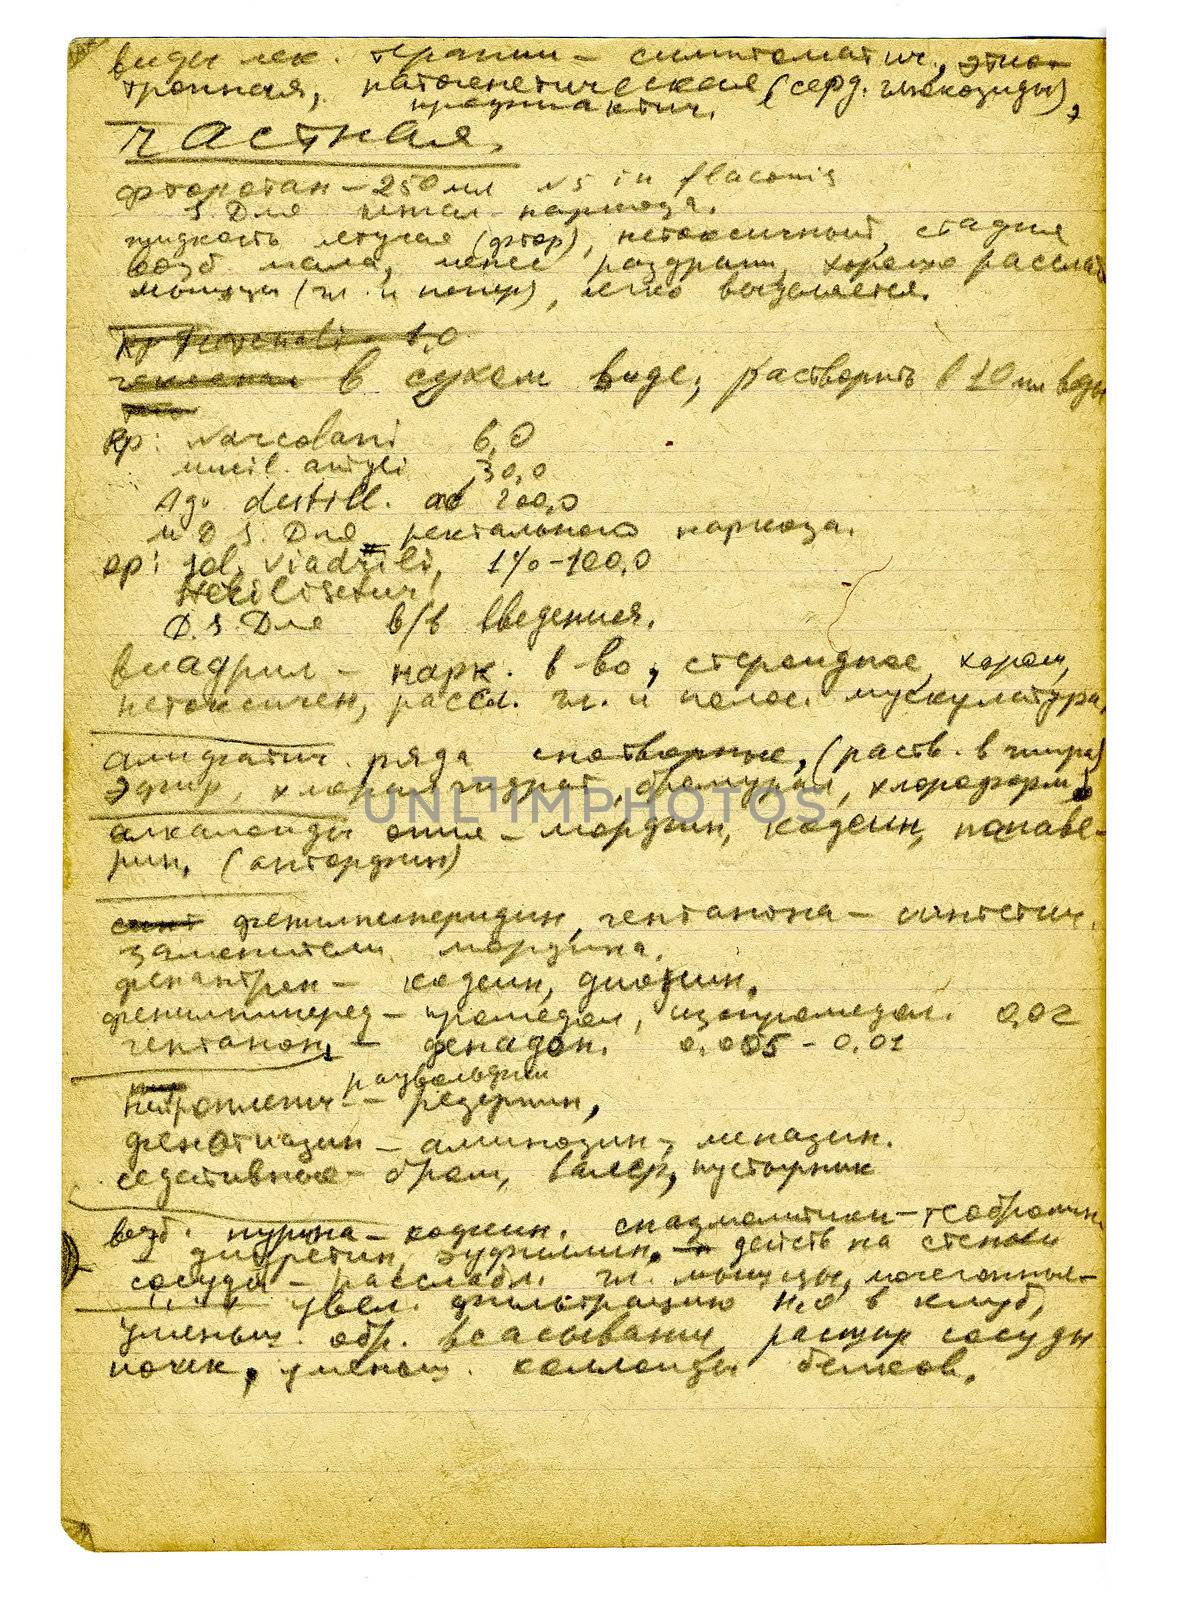 виды лек. терапии – симптоматич., этио-
тропная, патогенетическая (серд. гликозиды),
профилактич.
Частная.
фторотан – 250 мл N5 in flaconis
S. Для ингал. наркоза.
жидкость летучая (фтор), нетоксичный, стадия
возб. мала, менее раздраж., хорошо расслаб
мышцы (гл. и попер), легко выделяется.
Rp 1,0
в сухом виде, растворить в 10 мл воды
Rp: Narcolani 6,0
mucil. amyli 30,0
Aq. destill. ad 200,0
M D S. Для ректального наркоза.
Rp: Sol. Viadrili, 1% - 100,0
Sterilisetur!
D.S. Для в/в введения.
виадрил – нарк. в-во, стероидное, хорош,
нетоксичен, рассл. гл. и попер. мускулатура,
алифатич. ряда снотворные, (раств. в жира)
эфир, хлоралгидрат, бромурал, хлороформ
UNLIMPHOTOS
алкалоиды опия – морфин, кодеин, папаве-
рин. (апоморфин)
синт фенилпиперидин, гептанона – синтетич.
заменители морфина.
фенантрен – кодеин, дионин.
фенилпиперед – промедол, изопромедол. 0,02
гептанон – фенадон. 0,005 - 0,01
раувольфии
Нейролептич – резерпин,
фенотиазин – аминозин, мепазин.
седативные – бром, валер, пустырник
возб. пурина – кофеин. спазмолитики – теобромин
диуретин, эуфиллин. действ на стенки
сосуда – расслабл. гл. мышцы, мочегонные –
увел. фильтрацию H2O в клуб,
уменьш. обр. всасывания, расшир сосуды
почек, уменьш. коллоиды белков.